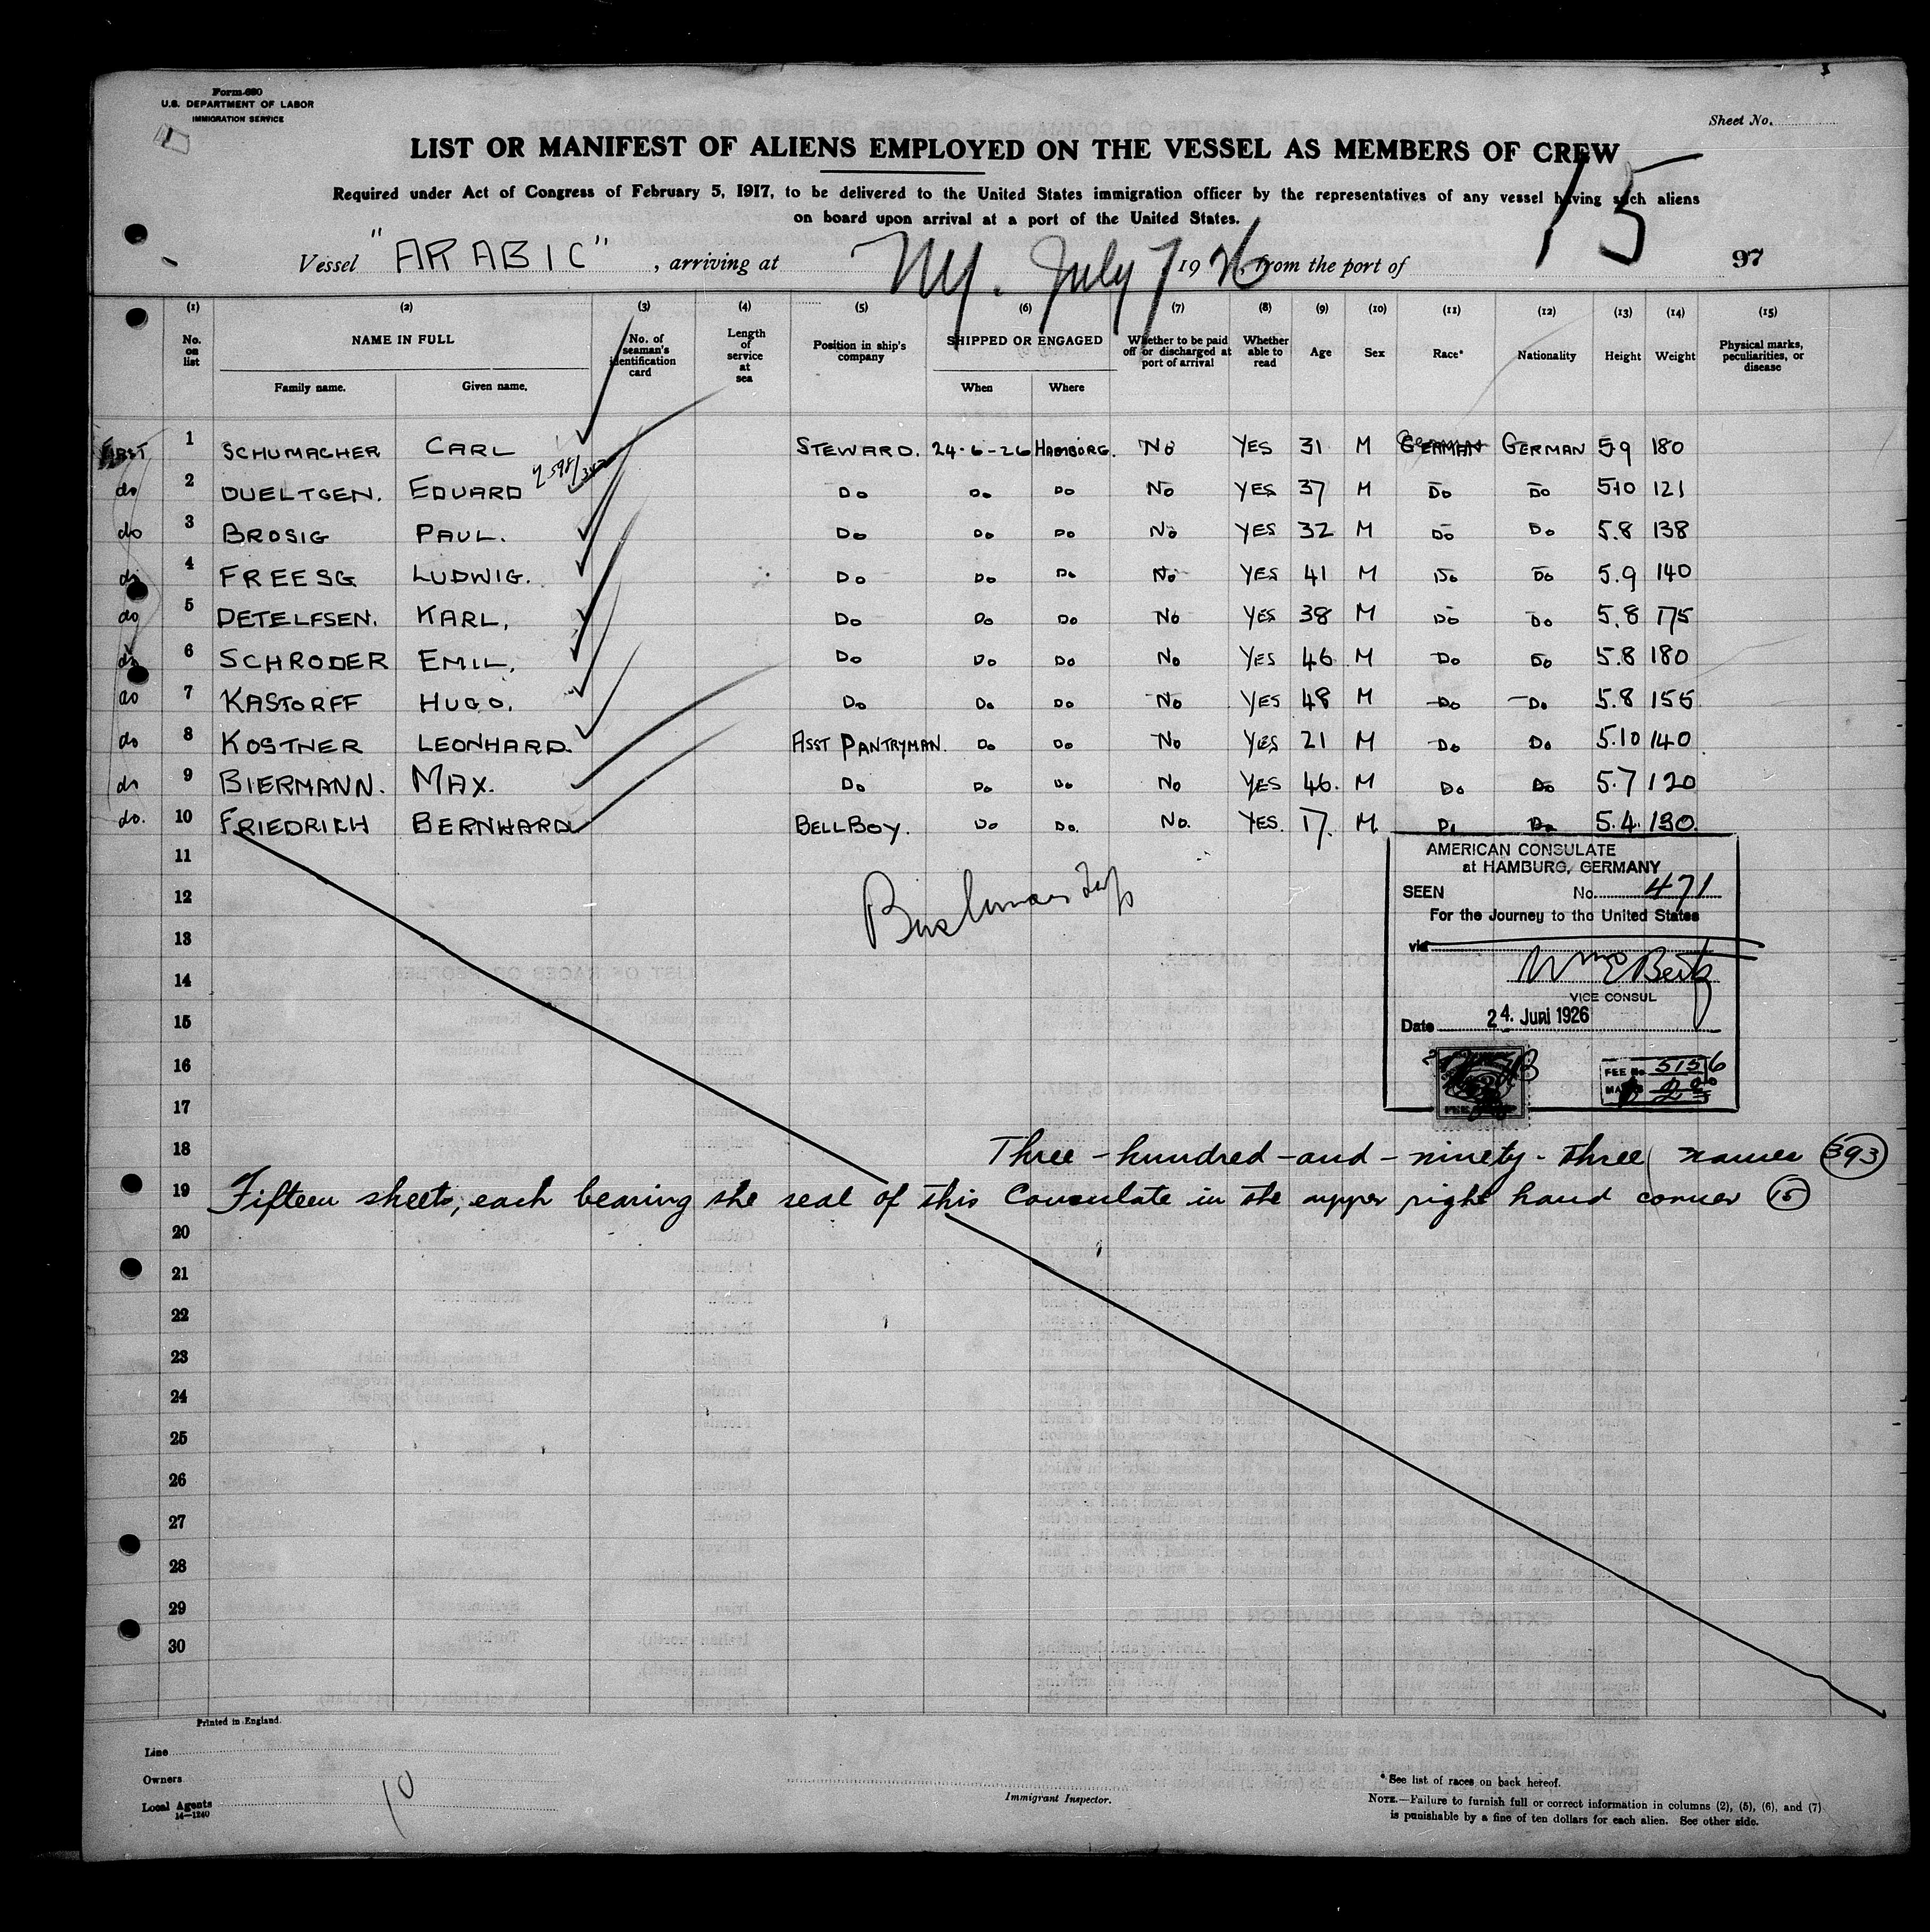 Form 680
U.S. DEPARTMENT OF LABOR
IMMIGRATION SERVICE
Sheet No.
LIST OR MANIFEST OF ALIENS EMPLOYED ON THE VESSEL AS MEMBERS OF CREW
15
Required under Act of Congress of February 5, 1917, to be delivered to the United States immigration officer by the representatives of any vessel having such aliens
on board upon arrival at a port of the United States.
Vessel "ARABIC", arriving at NY. July 7 1926, from the port of
97
(1) (2) (3) (4) (5) (6) (7) (8) (9) (10) (11) (12) (13) (14) (15)
No. on list NAME IN FULL Family name. Given name. No. of seaman's identification card Length of service at sea Position in ship's company SHIPPED OR ENGAGED When Where Whether to be paid off or discharged at port of arrival Whether able to read Age Sex Race* Nationality Height Weight Physical marks, peculiarities, or disease
FIRST 1 SCHUMACHER CARL STEWARD. 24-6-26 HAMBURG. No YES 31 M GERMAN GERMAN 5.9 180
do 2 DUELTGEN. EDUARD Do Do Do No YES 37 M Do Do 5.10 121
do 3 BROSIG PAUL. Do Do Do No YES 32 M Do Do 5.8 138
do 4 FREESG LUDWIG. Do Do Do No YES 41 M Do Do 5.9 140
do 5 DETELFSEN. KARL. Do Do Do No YES 38 M Do Do 5.8 175
do 6 SCHRODER EMIL. Do Do Do No YES 46 M Do Do 5.8 180
do 7 KASTORFF HUGO. Do Do Do No YES 48 M Do Do 5.8 155
do 8 KOSTNER LEONHARD. ASST PANTRYMAN. Do Do No YES 21 M Do Do 5.10 140
do 9 BIERMANN. MAX. Do Do Do No YES 46. M Do Do 5.7 120
do. 10 FRIEDRICH BERNHARD BELLBOY. Do Do. No. YES. 17. M Do Do 5.4. 130.
11
12
13
14
15
16
17
18
19
20
21
22
23
24
25
26
27
28
29
30
AMERICAN CONSULATE
at HAMBURG, GERMANY
SEEN No. 471
For the Journey to the United States
via
VICE CONSUL
Date 24. Juni 1926
FEE No. 5156
Three-hundred-and-ninety-three names 393
Fifteen sheets, each bearing the seal of this Consulate in the upper right hand corner 15
Printed in England.
Line
Owners
Local Agents
14—1240
10
Immigrant Inspector.
*See list of races on back hereof.
NOTE.—Failure to furnish full or correct information in columns (2), (5), (6), and (7)
is punishable by a fine of ten dollars for each alien. See other side.